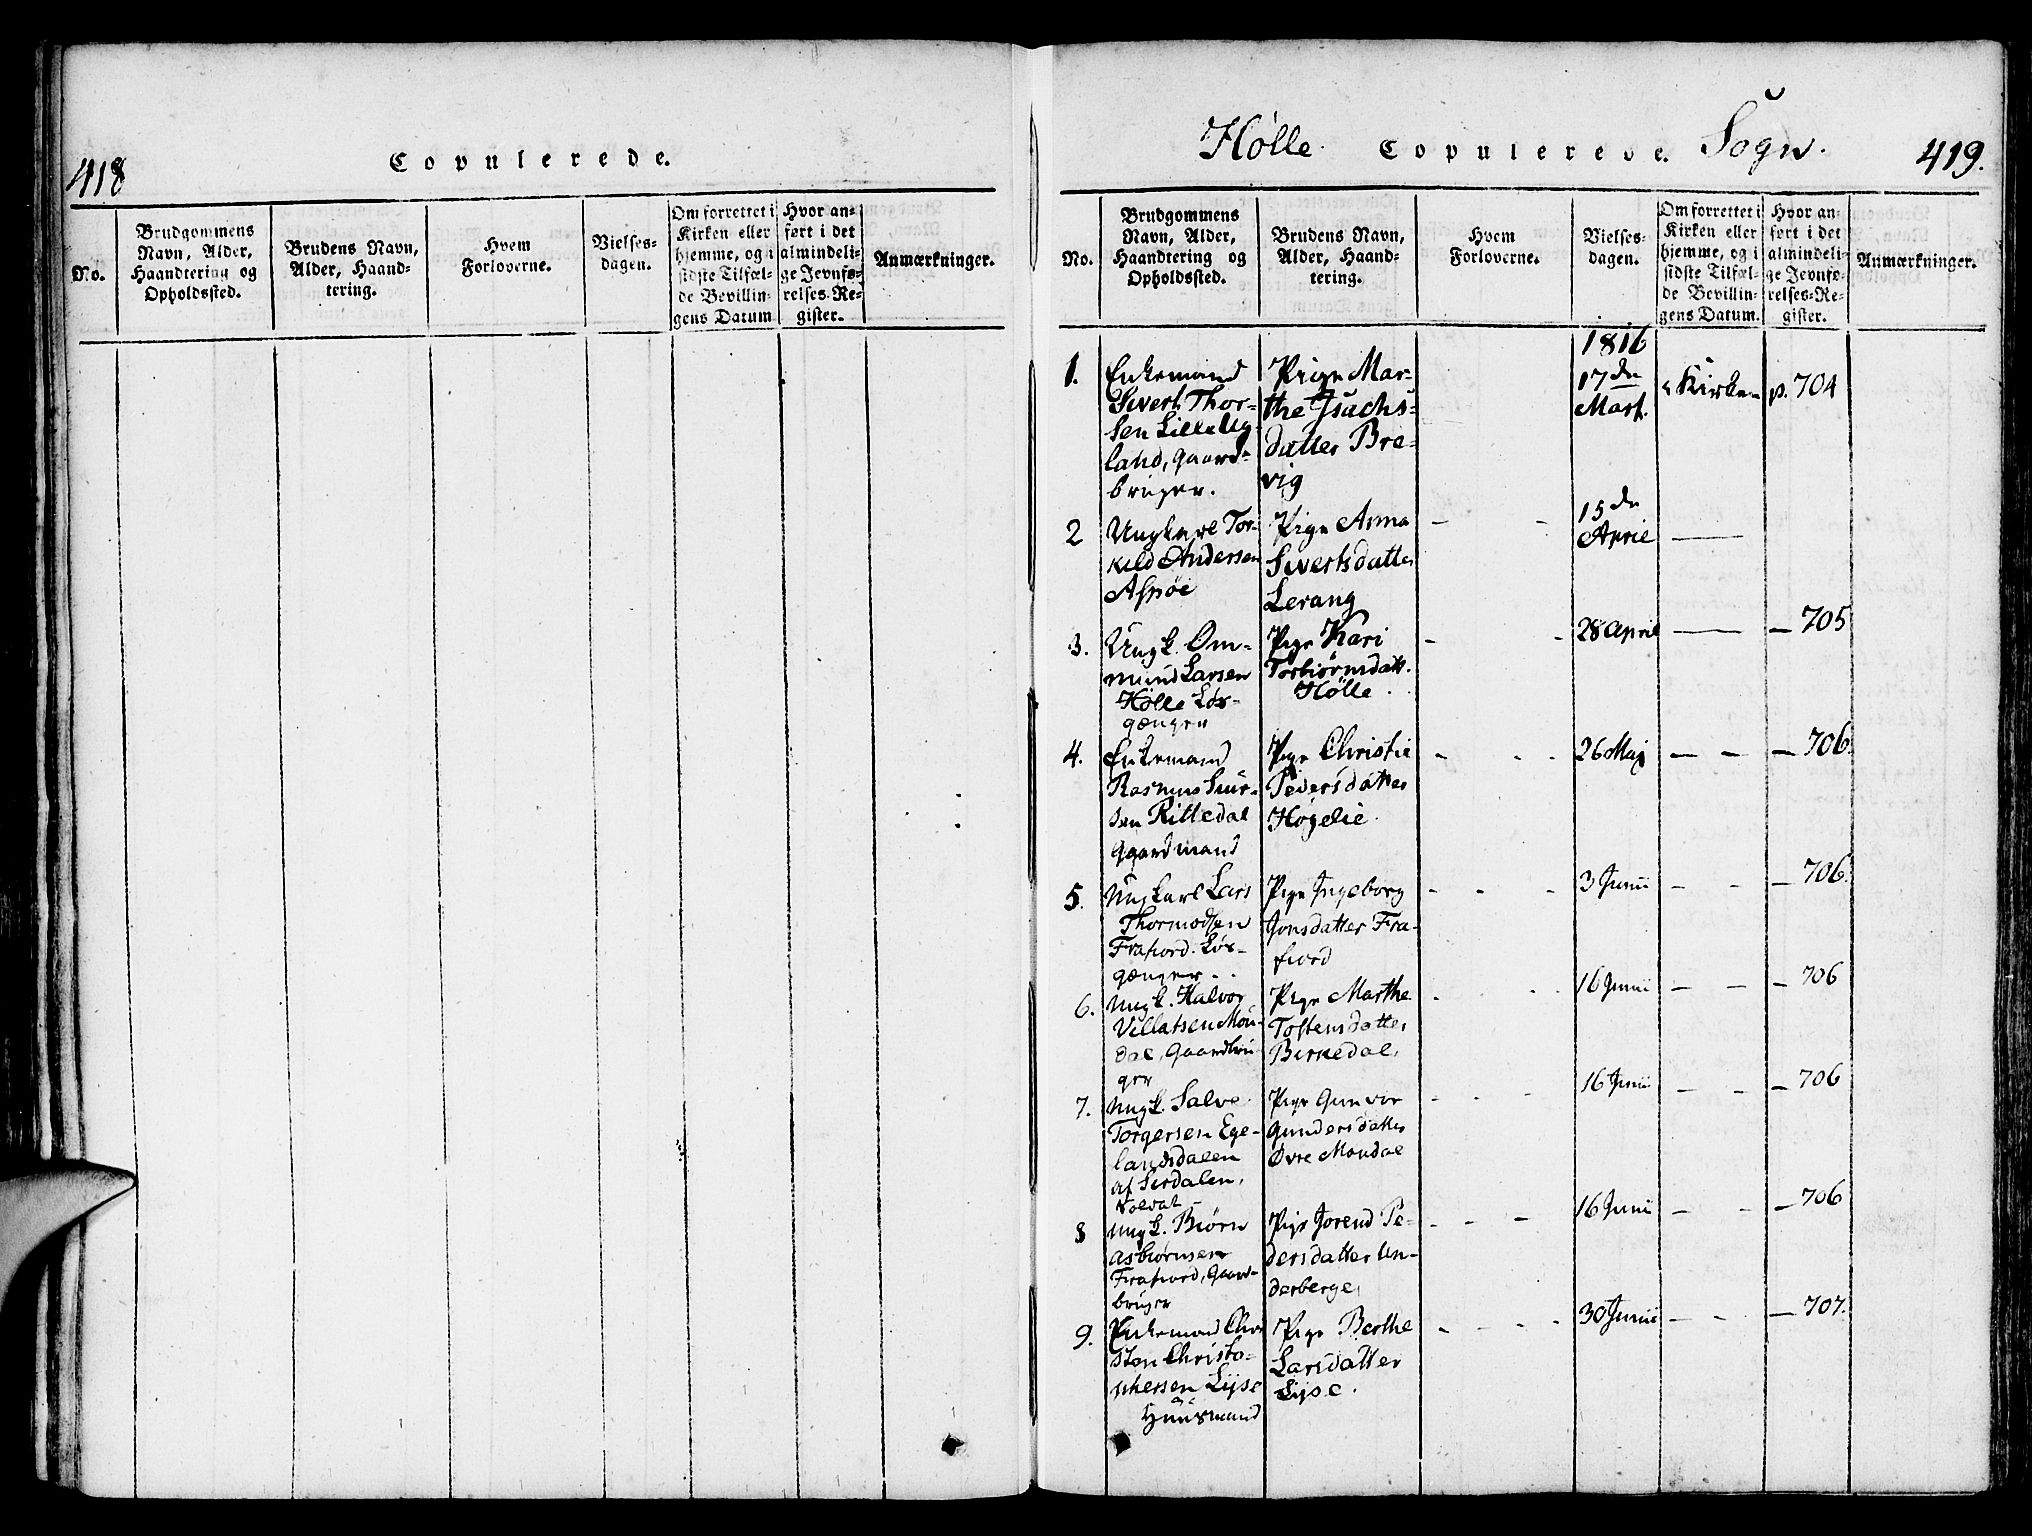 418
Copulerede.
No.
Brudgommens
Navn, Alder,
Haandtering og
Opholdssted.
Brudens Navn,
Alder, Haand-
tering.
Hvem
Forloverne.
Vielses-
dagen.
Om forrettet i
Kirken eller
hjemme, og i
sidste Tilfæl-
de Bevillin-
gens Datum
Hvor an-
ført i det
almindeli-
ge Jevnfø-
relses-Re-
gister.
Anmærkninger.
Hølle Copulerede. Sogn.
419.
No.
Brudgommens
Navn, Alder,
Haandtering og
Opholdssted.
Brudens Navn,
Alder, Haand-
tering.
Hvem
Forloverne.
Vielses-
dagen.
Om forrettet i
Kirken eller
hjemme, og i
sidste Tilfæl-
de Bevillin-
gens Datum.
Hvor an-
ført i det
almindeli-
ge Jevnfø-
relses-Re-
gister.
Anmærkninger.
1.
Enkemand
Sivert Thor-
sen Lille
land, Gaard-
bruger.
Pige Mar-
the Isachs-
datter Bre-
vig
1816
17de
Mart.
i Kirken
p. 704
2
Ungkarl Tor-
kild Andersen
Aspøe
Pige Anna
Sivertsdatter
Lerang
— -
15de
April
—
3.
Ungk. Om-
mund Larsen
Hölle Løs-
gænger
Pige Kari
Torbiørnsdatt.
Hölle.
- -
28 April
—
— 705
4.
Enkemand
Rasmus Siur-
sen Rittedal
Gaardmand
Pige Christie
Pedersdatter
Høgelie.
- - -
26 Maj
— -
— 706.
5.
Ungkarl Lars
Thormodsen
Frafiord. Løs-
gænger.
Pige Ingeborg
Jonsdatter Fra-
fiord
- - -
3 Junii
- -
— 706.
6.
Ungk. Halvor
Villatsen Mon-
dal, Gaardbru
ger
Pige Marthe
Tostensdatter
Birkedal.
- - -
16 Junii
— -
— 706
7.
Ungk. Salve
Torgersen Ege-
landsdalen
af Sirdalen,
Soldat
Pige Gunvor
Gundersdatter
Øvre Mondal
- - -
16 Junii
— -
— 706
8
Ungk. Biørn
Asbiørnsen
Frafiord, Gaard-
bruger
Pige Jorend Pe-
dersdatter Un-
derberge.
- - -
16 Junii
— -
— 706
9.
Enkemand
sten Christo-
phersen Lyse
Huusmand
Pige Berthe
Larsdatter
Lyse.
- - - -
30 Junii
— -
— 707.